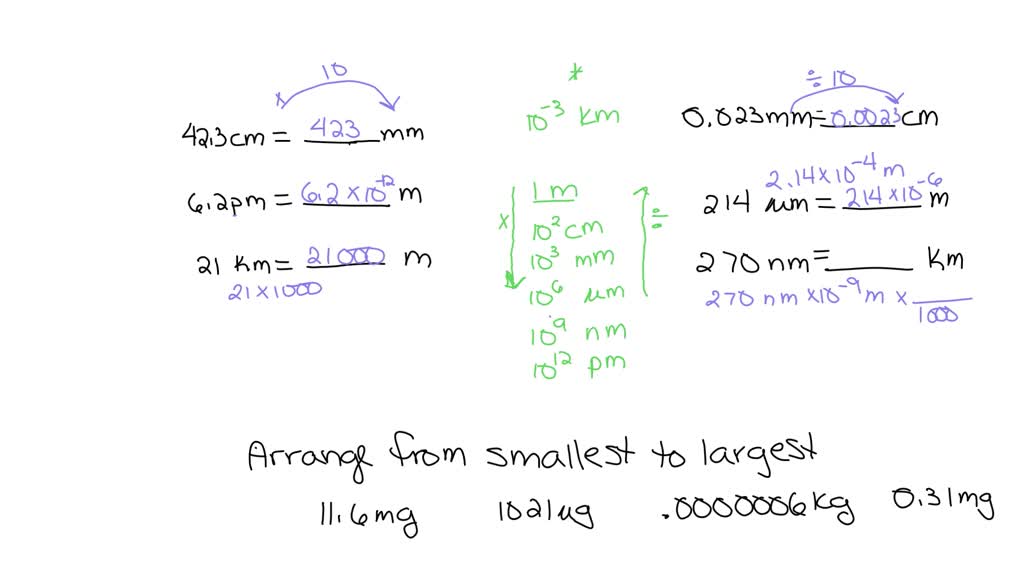 × 10
42.3cm = 423 mm
6.2pm = 6.2 × 10⁻¹² m
21 Km = 21000 m
21 × 1000
*
10⁻³ Km
1 m
×
÷
10² cm
10³ mm
10⁶ µm
10⁹ nm
10¹² pm
÷ 10
0.023mm = 0.0023 cm
2.14×10⁻⁴ m
214 µm = 214 × 10⁻⁶ m
270 nm = ______ Km
270 nm ×10⁻⁹ m × ___
1000
Arrange from smallest to largest
11.6mg 1021ug .0000006Kg 0.31mg